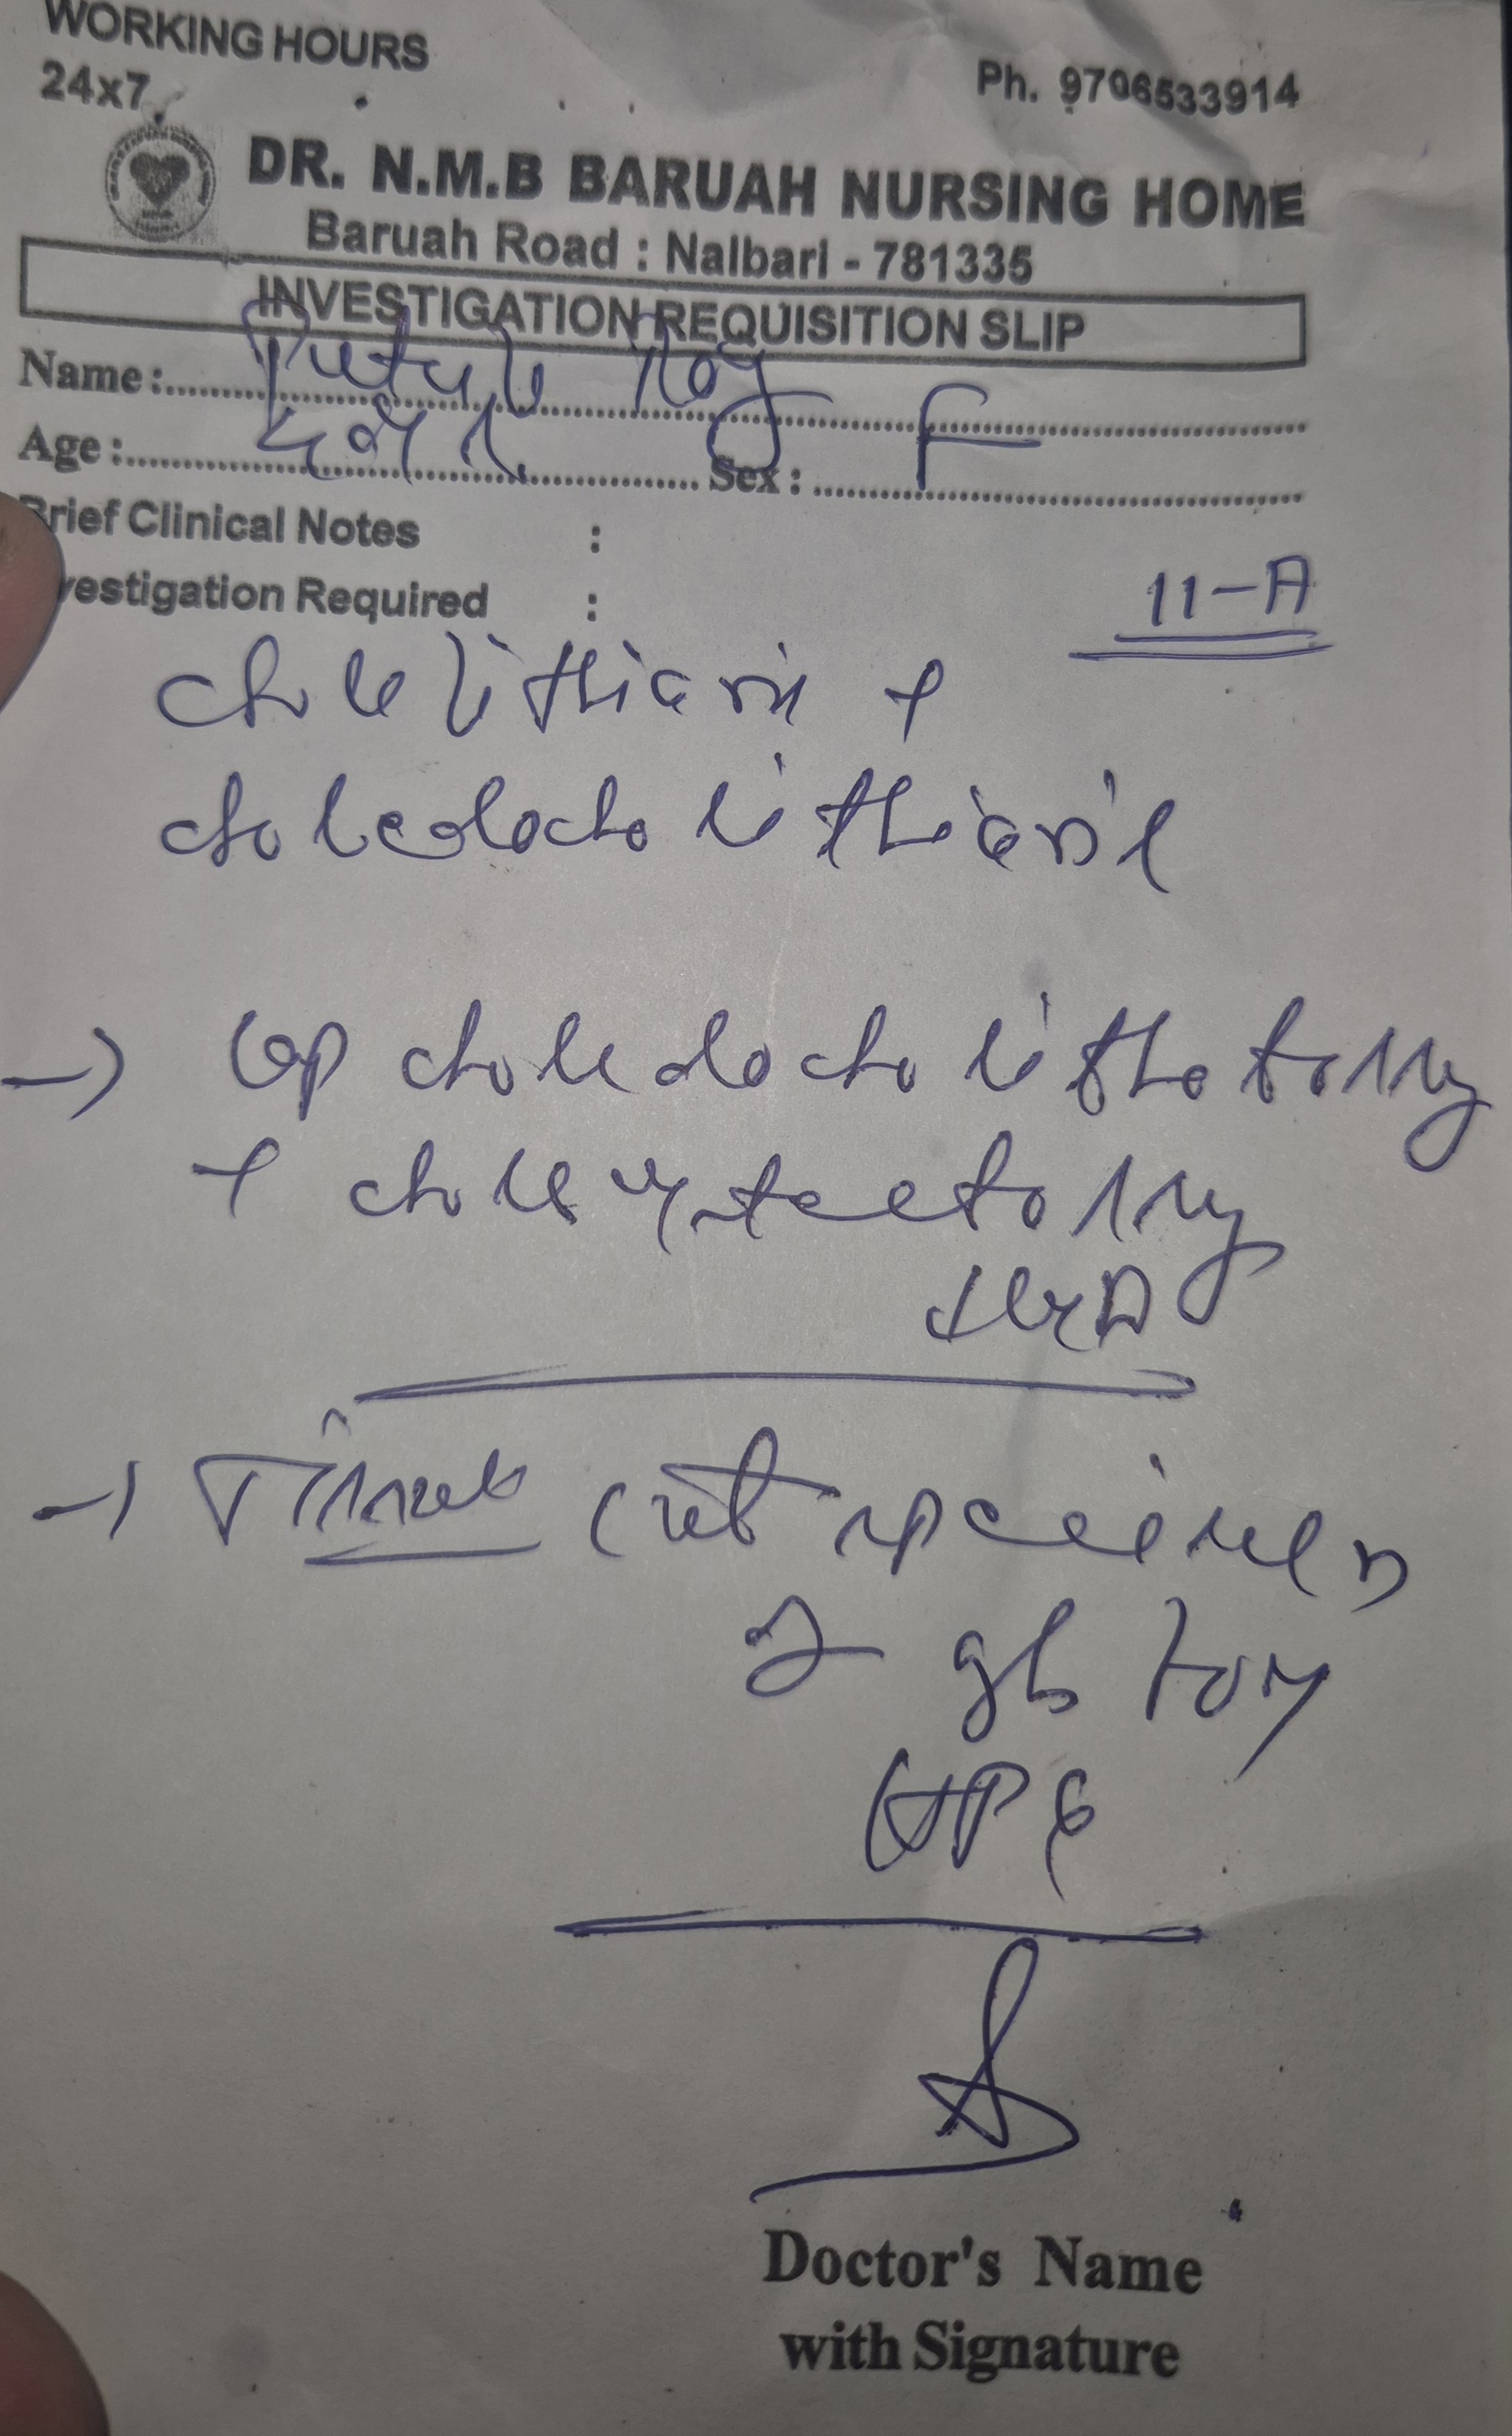 WORKING HOURS
24x7
Ph. 9706533914
DR. N.M.B BARUAH NURSING HOME
Baruah Road : Nalbari - 781335
INVESTIGATION REQUISITION SLIP
Name : Roy
Age : Sex : F
Brief Clinical Notes :
vestigation Required :
11-A
cholelithiasis +
choledocholithiasis
→ choledocholithotomy
+ cholecystectomy
→ Tissue cut specimen
gb for
HPE
Doctor's Name
with Signature